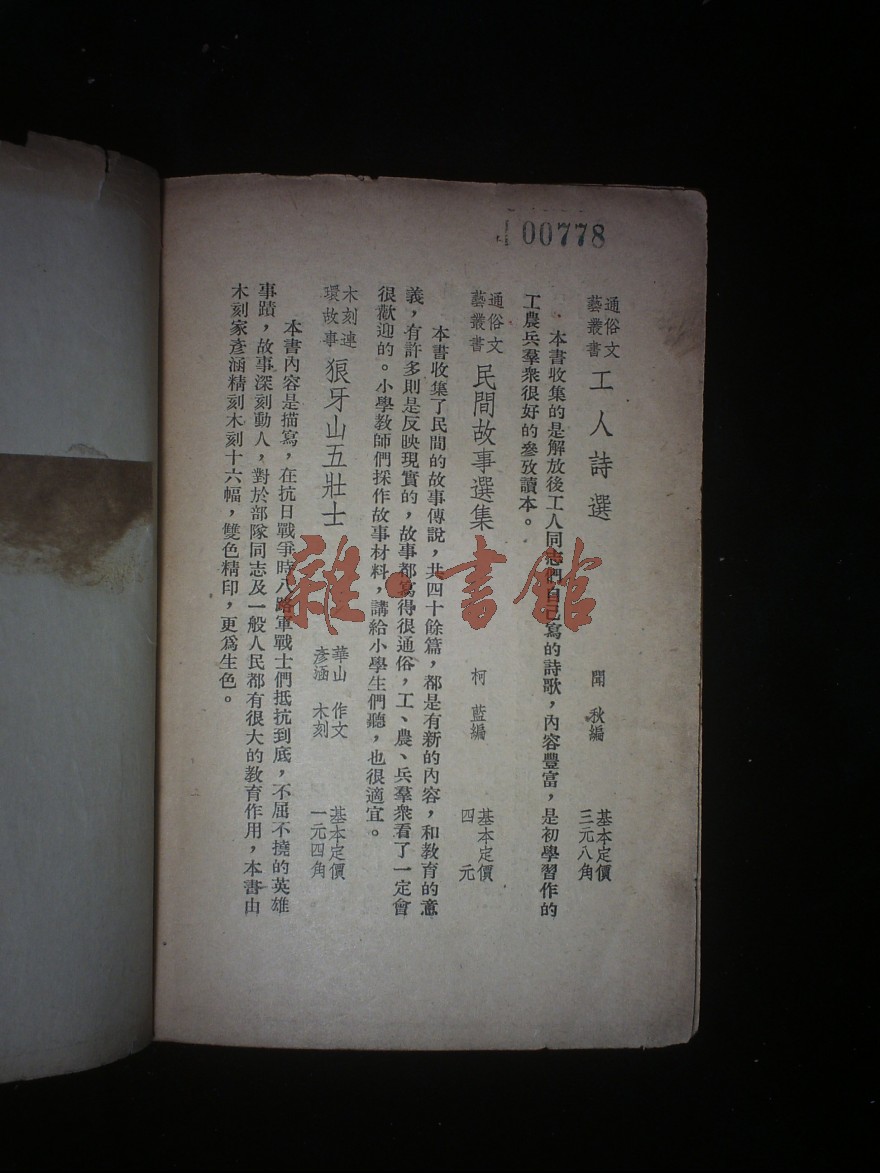 J 00778
通俗文藝叢書 工人詩選 聞秋編 基本定價三元八角
本書收集的是解放後工人同志們自己寫的詩歌，內容豐富，是初學習作的
工農兵羣衆很好的參攷讀本。
通俗文藝叢書 民間故事選集 柯藍編 基本定價四元
本書收集了民間的故事傳說，共四十餘篇，都是有新的內容，和教育的意
義，有許多則是反映現實的，故事都寫得很通俗，工、農、兵羣衆看了一定會
很歡迎的。小學教師們採作故事材料，講給小學生們聽，也很適宜。
木刻連環故事 狼牙山五壯士 華山作文 彥涵木刻 基本定價一元四角
本書內容是描寫，在抗日戰爭時八路軍戰士們抵抗到底，不屈不撓的英雄
事蹟，故事深刻動人，對於部隊同志及一般人民都有很大的教育作用，本書由
木刻家彥涵精刻木刻十六幅，雙色精印，更爲生色。
雜·書館